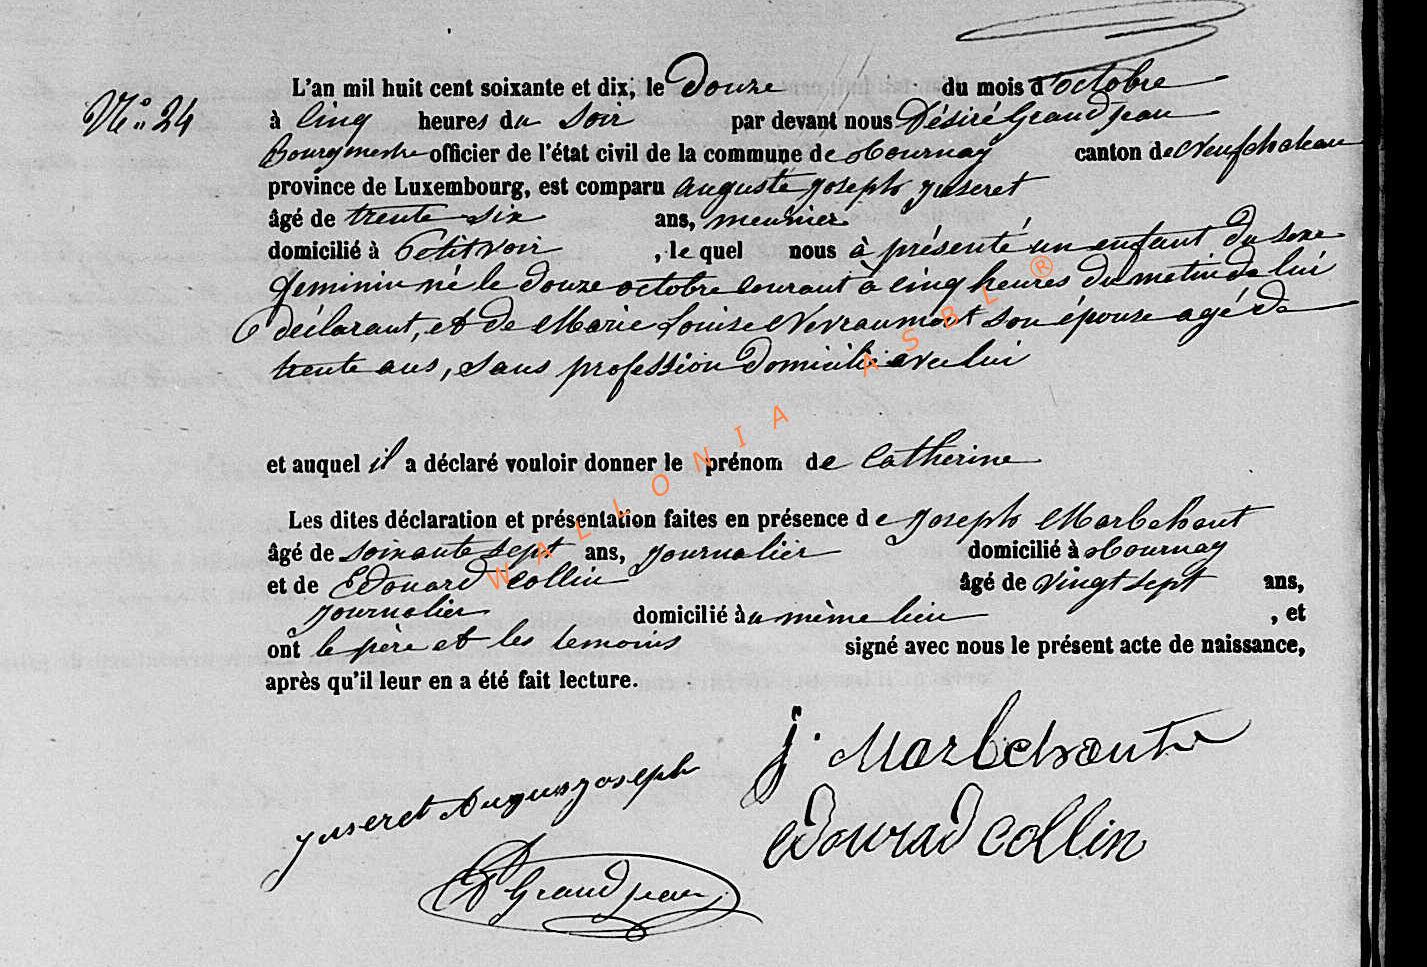 L'an mil huit cent soixante et dix, le Douze du mois d'octobre
N° 24
à Cinq heures du Soir par devant nous Désiré Grandjean
Bourgmestre officier de l'état civil de la commune de Tournay canton de Neufchateau
province de Luxembourg, est comparu Auguste Joseph Juseret
âgé de trente six ans, meunier
domicilié à Petitvoir , le quel nous à présenté un enfant du sexe
feminin né le Douze octobre courant à cinq heures du matin de lui
déclarant, et de Marie Louise Nevraumont son épouse agé de
trente ans, sans profession domicilié avec lui
et auquel il a déclaré vouloir donner le prénom de Catherine
Les dites déclaration et présentation faites en présence de Joseph Marbehant
âgé de soixante sept ans, journalier domicilié à Tournay
et de Edouard Collin âgé de vingt sept ans,
journalier domicilié au même lieu , et
ont le père et les temoins signé avec nous le présent acte de naissance,
après qu'il leur en a été fait lecture.
j. Marbehant
Juseret Auguss joseph
Edourad Collin
D Grandjean
WALLONIA ASBL ®